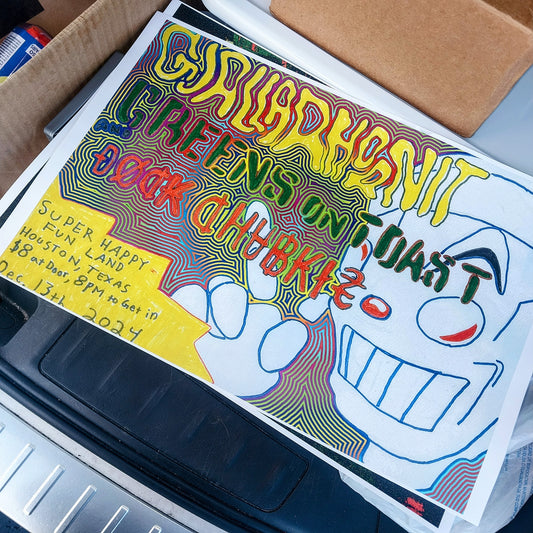 GJALLARHORNIT
GREENS ON TOAST,
DØCK
SUPER HAPPY
FUN LAND
HOUSTON, TEXAS
$8 at DOOR 8PM to Get in
Dec. 13th 2024